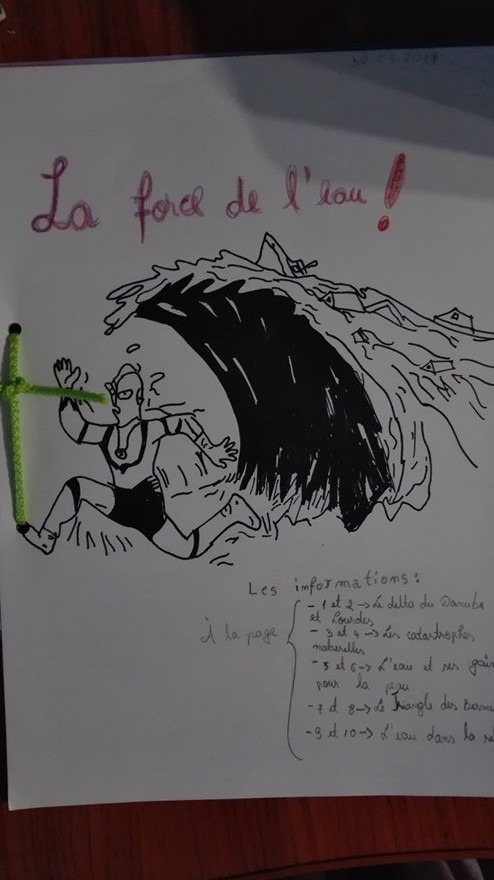 La force de l'eau!
Les informations:
À la page
- 1 et 2 -> Le delta du Danube
et Lourdes
- 3 et 4 -> Les catastrophes
naturelles
- 5 et 6 -> L'eau et ses
pour la peau
- 7 et 8 -> Le Triangle des
- 9 et 10 -> L'eau dans la